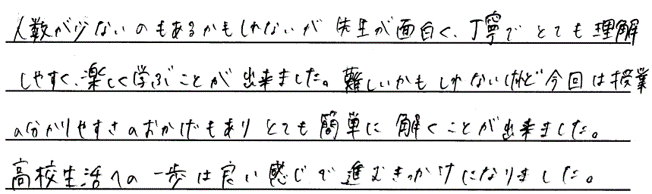 人数が少ないのもあるかもしれないが 先生が面白く、丁寧で とても 理解
しやすく、楽しく学ぶことが 出来ました。難しいかも しれないけど 今回は 授業
の分かりやすさのおかげもあり とても 簡単に 解くことが出来ました。
高校生活への 一歩は良い感じで 進むきっかけになりました。